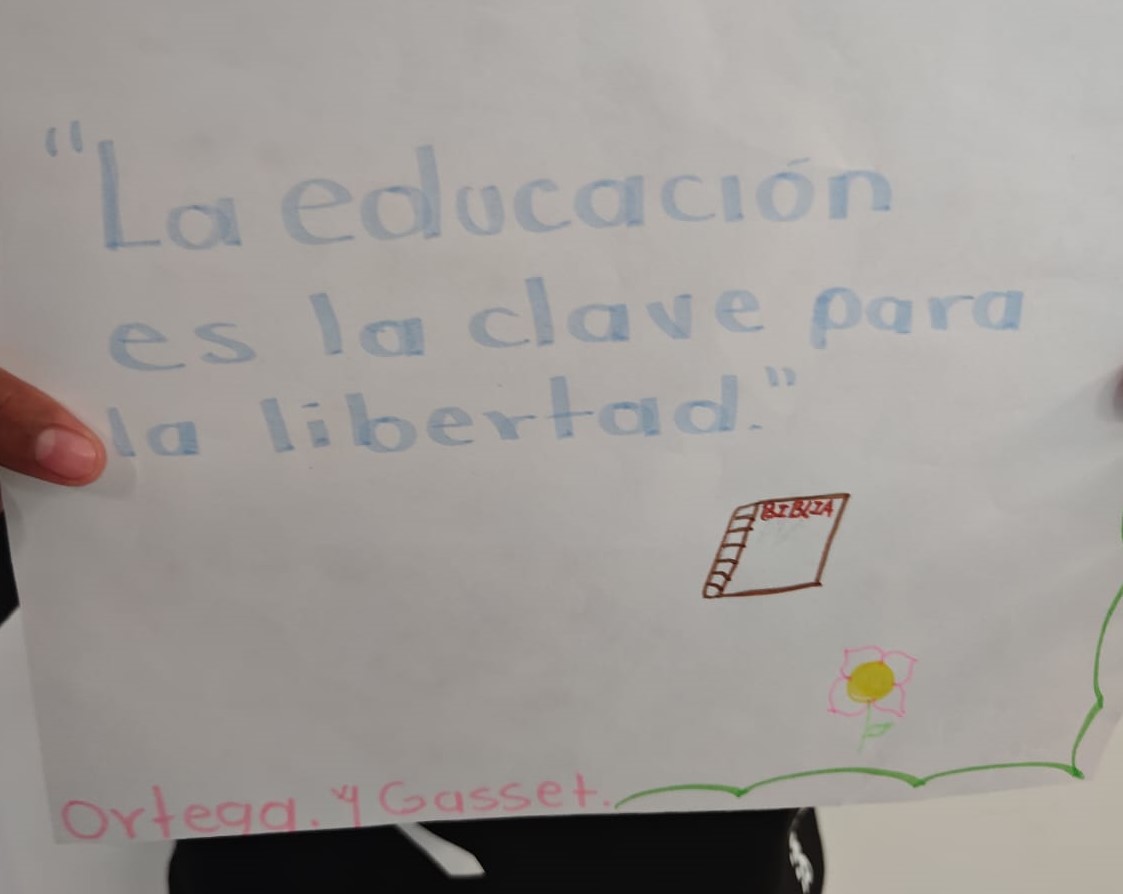 "La educación
es la clave para
la libertad."
BIBLIA
Ortega. y Gasset.